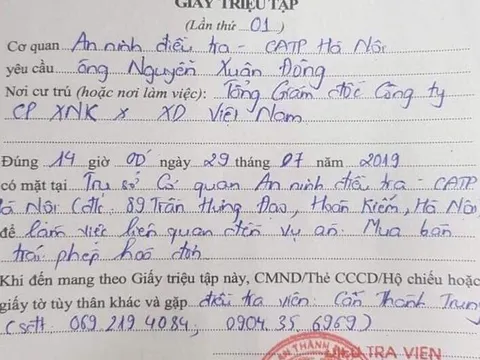 GIẤY TRIỆU TẬP
(Lần thứ 01)
Cơ quan An ninh điều tra - CATP Hà Nội
yêu cầu ông Nguyễn Xuân Đông
Nơi cư trú (hoặc nơi làm việc): Tổng Giám đốc Công ty
CP XNK x XD Việt Nam
Đúng 14 giờ 00 ngày 29 tháng 07 năm 2019
có mặt tại Trụ sở Cơ quan An ninh điều tra - CATP
Hà Nội (đ/c: 89 Trần Hưng Đạo, Hoàn Kiếm, Hà Nội)
để làm việc liên quan đến vụ án: Mua bán
trái phép hoá đơn
Khi đến mang theo Giấy triệu tập này, CMND/Thẻ CCCD/Hộ chiếu hoặc
giấy tờ tùy thân khác và gặp điều tra viên: Cấn Thanh Trung
(sđt: 069.219 4084, 0904.35 6969)
ĐIỀU TRA VIÊN